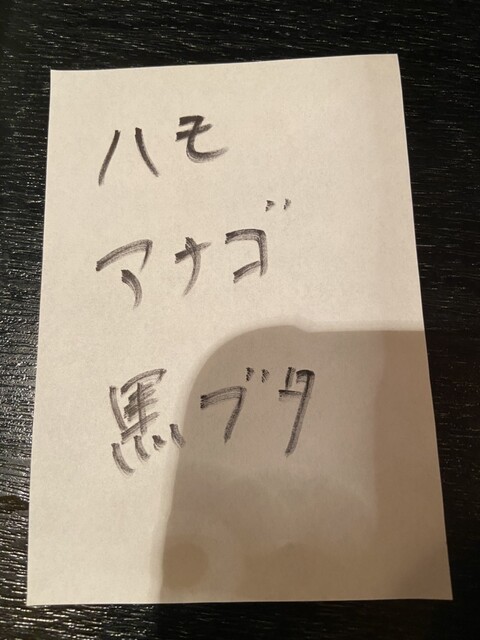 ハモ
アナゴ
黒ブタ